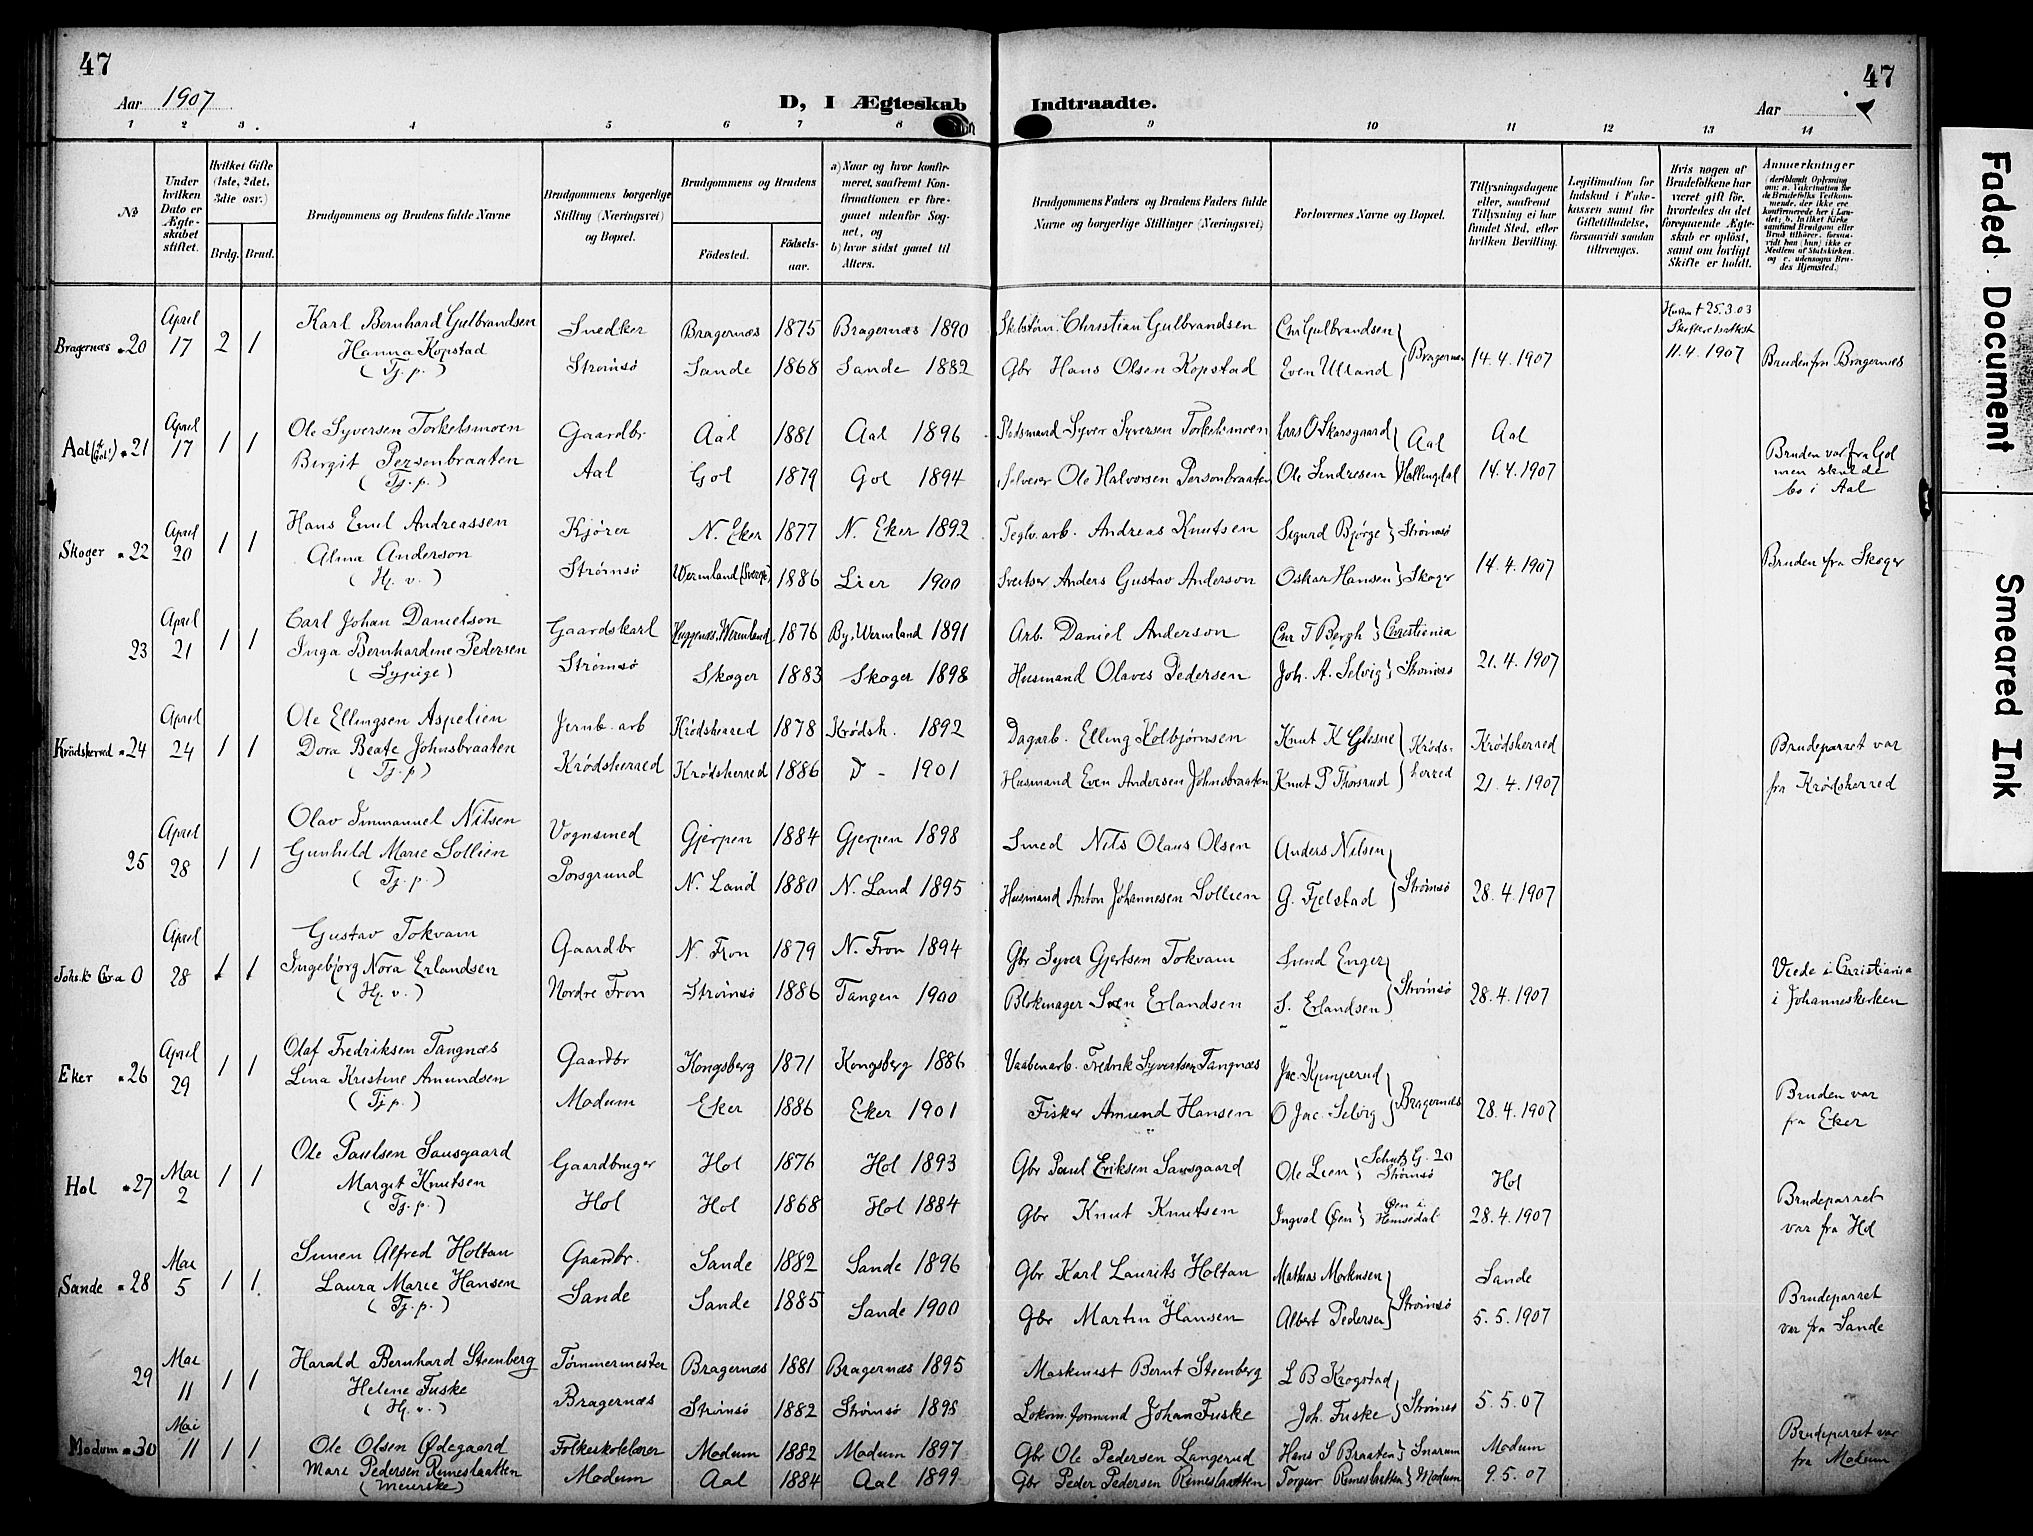 47
47
Aar 1907
D, I Ægteskab Indtraadte.
Aar
1 2 3 4 5 6 7 8 9 10 11 12 13 14
№
Under hvilken Dato er Ægteskabet stiftet.
Hvilket Gifte (1ste, 2det, 3die osv.)
Brdg. Brud.
Brudgommens og Brudens fulde Navne
Brudgommens borgerlige Stilling (Næringsvei) og Bopæl.
Brudgommens og Brudens
Fødested. Fødselsaar.
a) Naar og hvor konfirmeret, saafremt Konfirmationen er foregaaet udenfor Sognet, og
b) hvor sidst gaaet til Alters.
Brudgommens Faders og Brudens Faders fulde Navne og borgerlige Stillinger (Næringsvei)
Forlovernes Navne og Bopæl.
Tillysningsdagene eller, saafremt Tillysning ei har fundet Sted, efter hvilken Bevilling.
Legitimation for Indskud i Enkekassen samt for Giftetilladelse, forsaavidt saadan tiltrænges.
Hvis nogen af Brudefolkene har været gift før, hvorledes da det foregaaende Ægteskab er opløst, samt om lovligt Skifte er holdt.
Anmærkninger
Bragernæs 20 April 17 2 1
Karl Bernhard Gulbrandsen Snedker Bragernæs 1875 Bragernæs 1890 Christian Gulbrandsen Chr Gulbrandsen
Hanna Kopstad (Tj. p.) Strømsø Sande 1868 Sande 1882 Gbr Hans Olsen Kopstad Even Ulland Bragernæs 14.4.1907
† 25.3.03 11.4.1907 Bruden fra Bragernæs
Aal 21 April 17 1 1
Ole Syversen Torkelsmoen Gaardbr Aal 1881 Aal 1896 Pladsmand Syver Syversen Torkelsmoen Lars O Skarsgaard Aal Aal
Birgit Personbraaten (Tj. p.) Aal Gol 1879 Gol 1894 Selveier Ole Halvorsen Personbraaten Ole Sendresen Hallingdal 14.4.1907
Bruden var fra Gol men skulde bo i Aal
Skoger 22 April 20 1 1
Hans Emil Andreassen Kjører N. Eker 1877 N. Eker 1892 Teglv.arb. Andreas Knutsen Sigurd Bjørge Strømsø
Alma Anderson (Hj. v.) Strømsø Wermland (Sverge) 1886 Lier 1900 Sveitser Anders Gustav Anderson Oskar Hansen Skoger 14.4.1907
Bruden fra Skoger
23 April 21 1 1
Carl Johan Danielson Gaardskarl Huggenæs, Wermland 1876 By, Wermland 1891 Arb. Daniel Anderson Chr T Bergh Christiania
Inga Bernhardine Pedersen (Sypige) Strømsø Skoger 1883 Skoger 1898 Husmand Olaves Pedersen Joh. A. Selvig Strømsø 21.4.1907
Krødsherred 24 April 24 1 1
Ole Ellingsen Aspelien Jernb. arb Krødsherred 1878 Krødsh. 1892 Dagarb. Elling Kolbjørnsen Knut K Glesne Krødsherred Krødsherred
Dora Beate Johnsbraaten (Tj. p) Krødsherred Krødsherred 1886 D - 1901 Husmand Even Andersen Johnsbraaten Knut P Thorsrud 21.4.1907
Brudeparret var fra Krødsherred
25 April 28 1 1
Olav Immanuel Nilsen Vognsmed Gjerpen 1884 Gjerpen 1898 Smed Nils Olaus Olsen Anders Nilsen
Gunhild Marie Sollien (Tj. p.) Porsgrund N. Land 1880 N. Land 1895 Husmand Anton Johannesen Sollien G. Fjelstad Strømsø 28.4.1907
Johs.k 0 April 28 1 1
Gustav Tokvam Gaardbr N. Fron 1879 N. Fron 1894 Gbr Syver Gjertsen Tokvam Svend Enger
Ingebjørg Nora Erlandsen (Hj. v.) Nordre Fron Strømsø 1886 Tangen 1900 Blokmager Sven Erlandsen S. Erlandsen Strømsø 28.4.1907
Viede i Christiania i Johanneskirken
Eker 26 April 29 1 1
Olaf Fredriksen Tangnæs Gaardbr Kongsberg 1871 Kongsberg 1886 Vaabenarb. Fredrik Syvertsen Tangnæs Jac. Kjemperud
Lina Kristine Amundsen (Tj p.) Modum Eker 1886 Eker 1901 Fisker Amund Hansen O Jac. Selvig Bragernæs 28.4.1907
Bruden var fra Eker
Hol 27 Mai 2 1 1
Ole Paulsen Sausgaard Gaardbruger Hol 1876 Hol 1893 Gbr Paul Eriksen Sausgaard Ole Lien Schutz G. 20 Strømsø Hol
Margit Knutsen (Tj. p.) Hol Hol 1868 Hol 1884 Gbr Knut Knutsen Ingval Øen Øen i Hemsedal 28.4.1907
Brudeparret var fra Hol
Sande 28 Mai 5 1 1
Simen Alfred Holtan Gaardbr. Sande 1882 Sande 1896 Gbr Karl Laurits Holtan Mathias Morkusen Sande
Laura Marie Hansen (Tj. p.) Sande Sande 1885 Sande 1900 Gbr Martin Hansen Albert Pedersen Strømsø 5.5.1907
Brudeparret var fra Sande
29 Mai 11 1 1
Harald Bernhard Steenberg Tømmermester Bragernæs 1881 Bragernæs 1895 Maskinist Bernt Steenberg L B Krogstad
Helene Fuske (Hj. v.) Bragernæs Strømsø 1882 Strømsø 1898 Lokom. formand Johan Fuske Joh. Fuske Strømsø 5.5.07
Modum 30 Mai 11 1 1
Ole Olsen Ødegaard Folkeskolelærer Modum 1882 Modum 1897 Gbr Ole Pedersen Langerud Hans S Braaten Snarum Modum
Mari Pedersen Remeslaatten (Meierske) Modum Aal 1884 Aal 1899 Gbr Peder Pedersen Remeslaatten Torgeir Remeslaatten Modum 9.5.07
Brudeparret var fra Modum
Faded Document
Smeared Ink